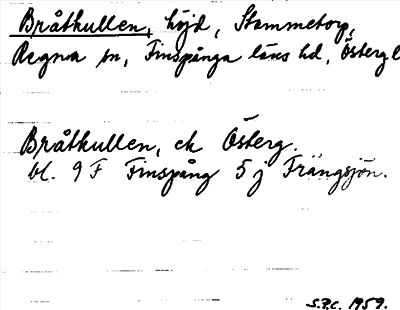 Bråtkullen, höjd, Stammetorp,
Regna sn, Finspånga läns hd, Östergl
Bråtkullen, ek Österg.
bl. 9 F Finspång 5 j Frängsjön.
S.P.C. 1959.